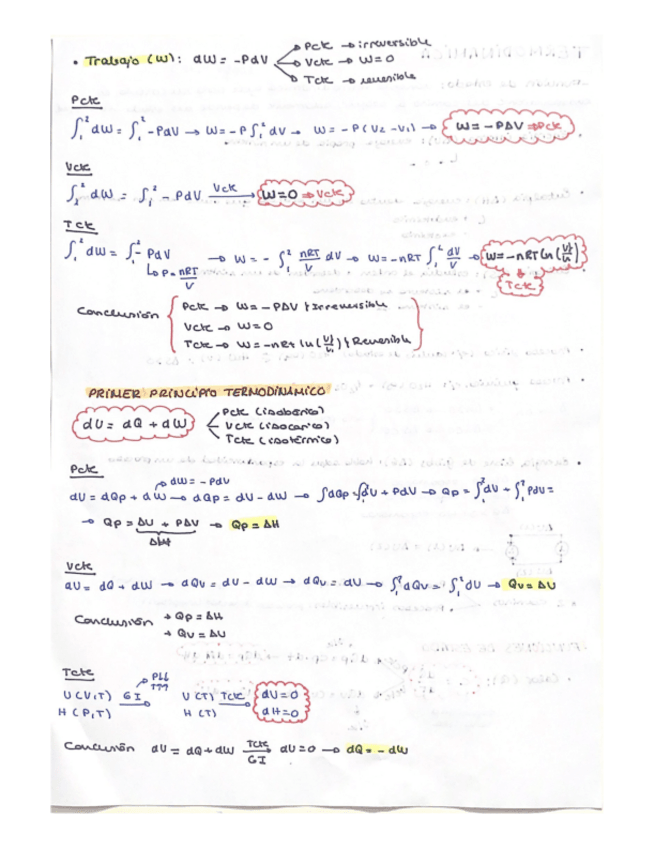 • Trabajo (W): dW = -PdV → Pctc → irreversible
→ Vctc → W=0
→ Tctc → reversible
Pctc
∫₁² dW = ∫₁² -PdV → W = -P ∫₁² dV → W = -P(V2 - V1) → W = -PΔV ⇒ Pctc
Vctc
∫₁² dW = ∫₁² -PdV Vctc → W=0 ⇒ Vctc
Tctc
∫₁² dW = ∫₁² -PdV → W = -∫₁² nRT/V dV → W = -nRT ∫₁² dV/V → W = -nRT ln(Vf/Vi)
↳ P = nRT/V
⇓ Tctc
Conclusión { Pctc → W = -PΔV } Irreversible
Vctc → W=0
Tctc → W = -nRT ln(Vf/Vi) } Reversible
PRIMER PRINCIPIO TERMODINÁMICO
dU = dQ + dW
Pctc (isobárico)
Vctc (isocórico)
Tctc (isotérmico)
Pctc
dW = -PdV
dU = dQp + dW → dQp = dU - dW → ∫dQp = ∫dU + PdV → Qp = ∫₁² dU + ∫₁² PdV =
→ Qp = ΔU + PΔV → Qp = ΔH
ΔH
Vctc
dU = dQ + dW → dQv = dU - dW → dQv = dU → ∫₁² dQv = ∫₁² dU → Qv = ΔU
Conclusión → Qp = ΔH
→ Qv = ΔU
Tctc
P↓↓
T↑↑
U(V,T) GI → U(T) Tctc → dU=0
H(P,T) H(T) dH=0
Conclusión dU = dQ + dW Tctc/GI → dU=0 → dQ = -dW